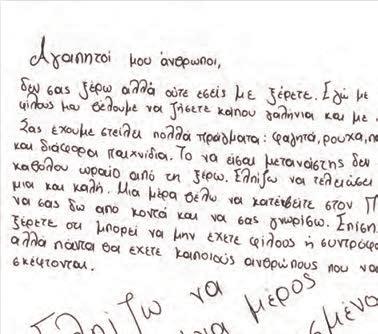 Αγαπητοί μου άνθρωποι,
δεν σας ξέρω αλλά ούτε εσείς με ξέρετε. Εγώ με
φίλους μου θέλουμε να ζήσετε κάπου γαλήνια και με
Σας έχουμε στείλει πολλά πράγματα: φαγητά, ρούχα, πα
και διάφορα παιχνίδια. Το να είσαι μετανάστης δεν
καθόλου ωραίο από τη ξέρω. Ελπίζω να τελειώσει
μια και καλή. Μια μέρα θέλω να κατέβετε στον Π
να σας δω από κοντά και να σας γνωρίσω. Επίση
ξέρετε οτι μπορεί να μην έχετε φίλους ή συντρόφο
αλλά πάντα θα έχετε κάποιους ανθρώπους που να
σκέφτονται.
Ελπίζω να
μέρος
σμένο